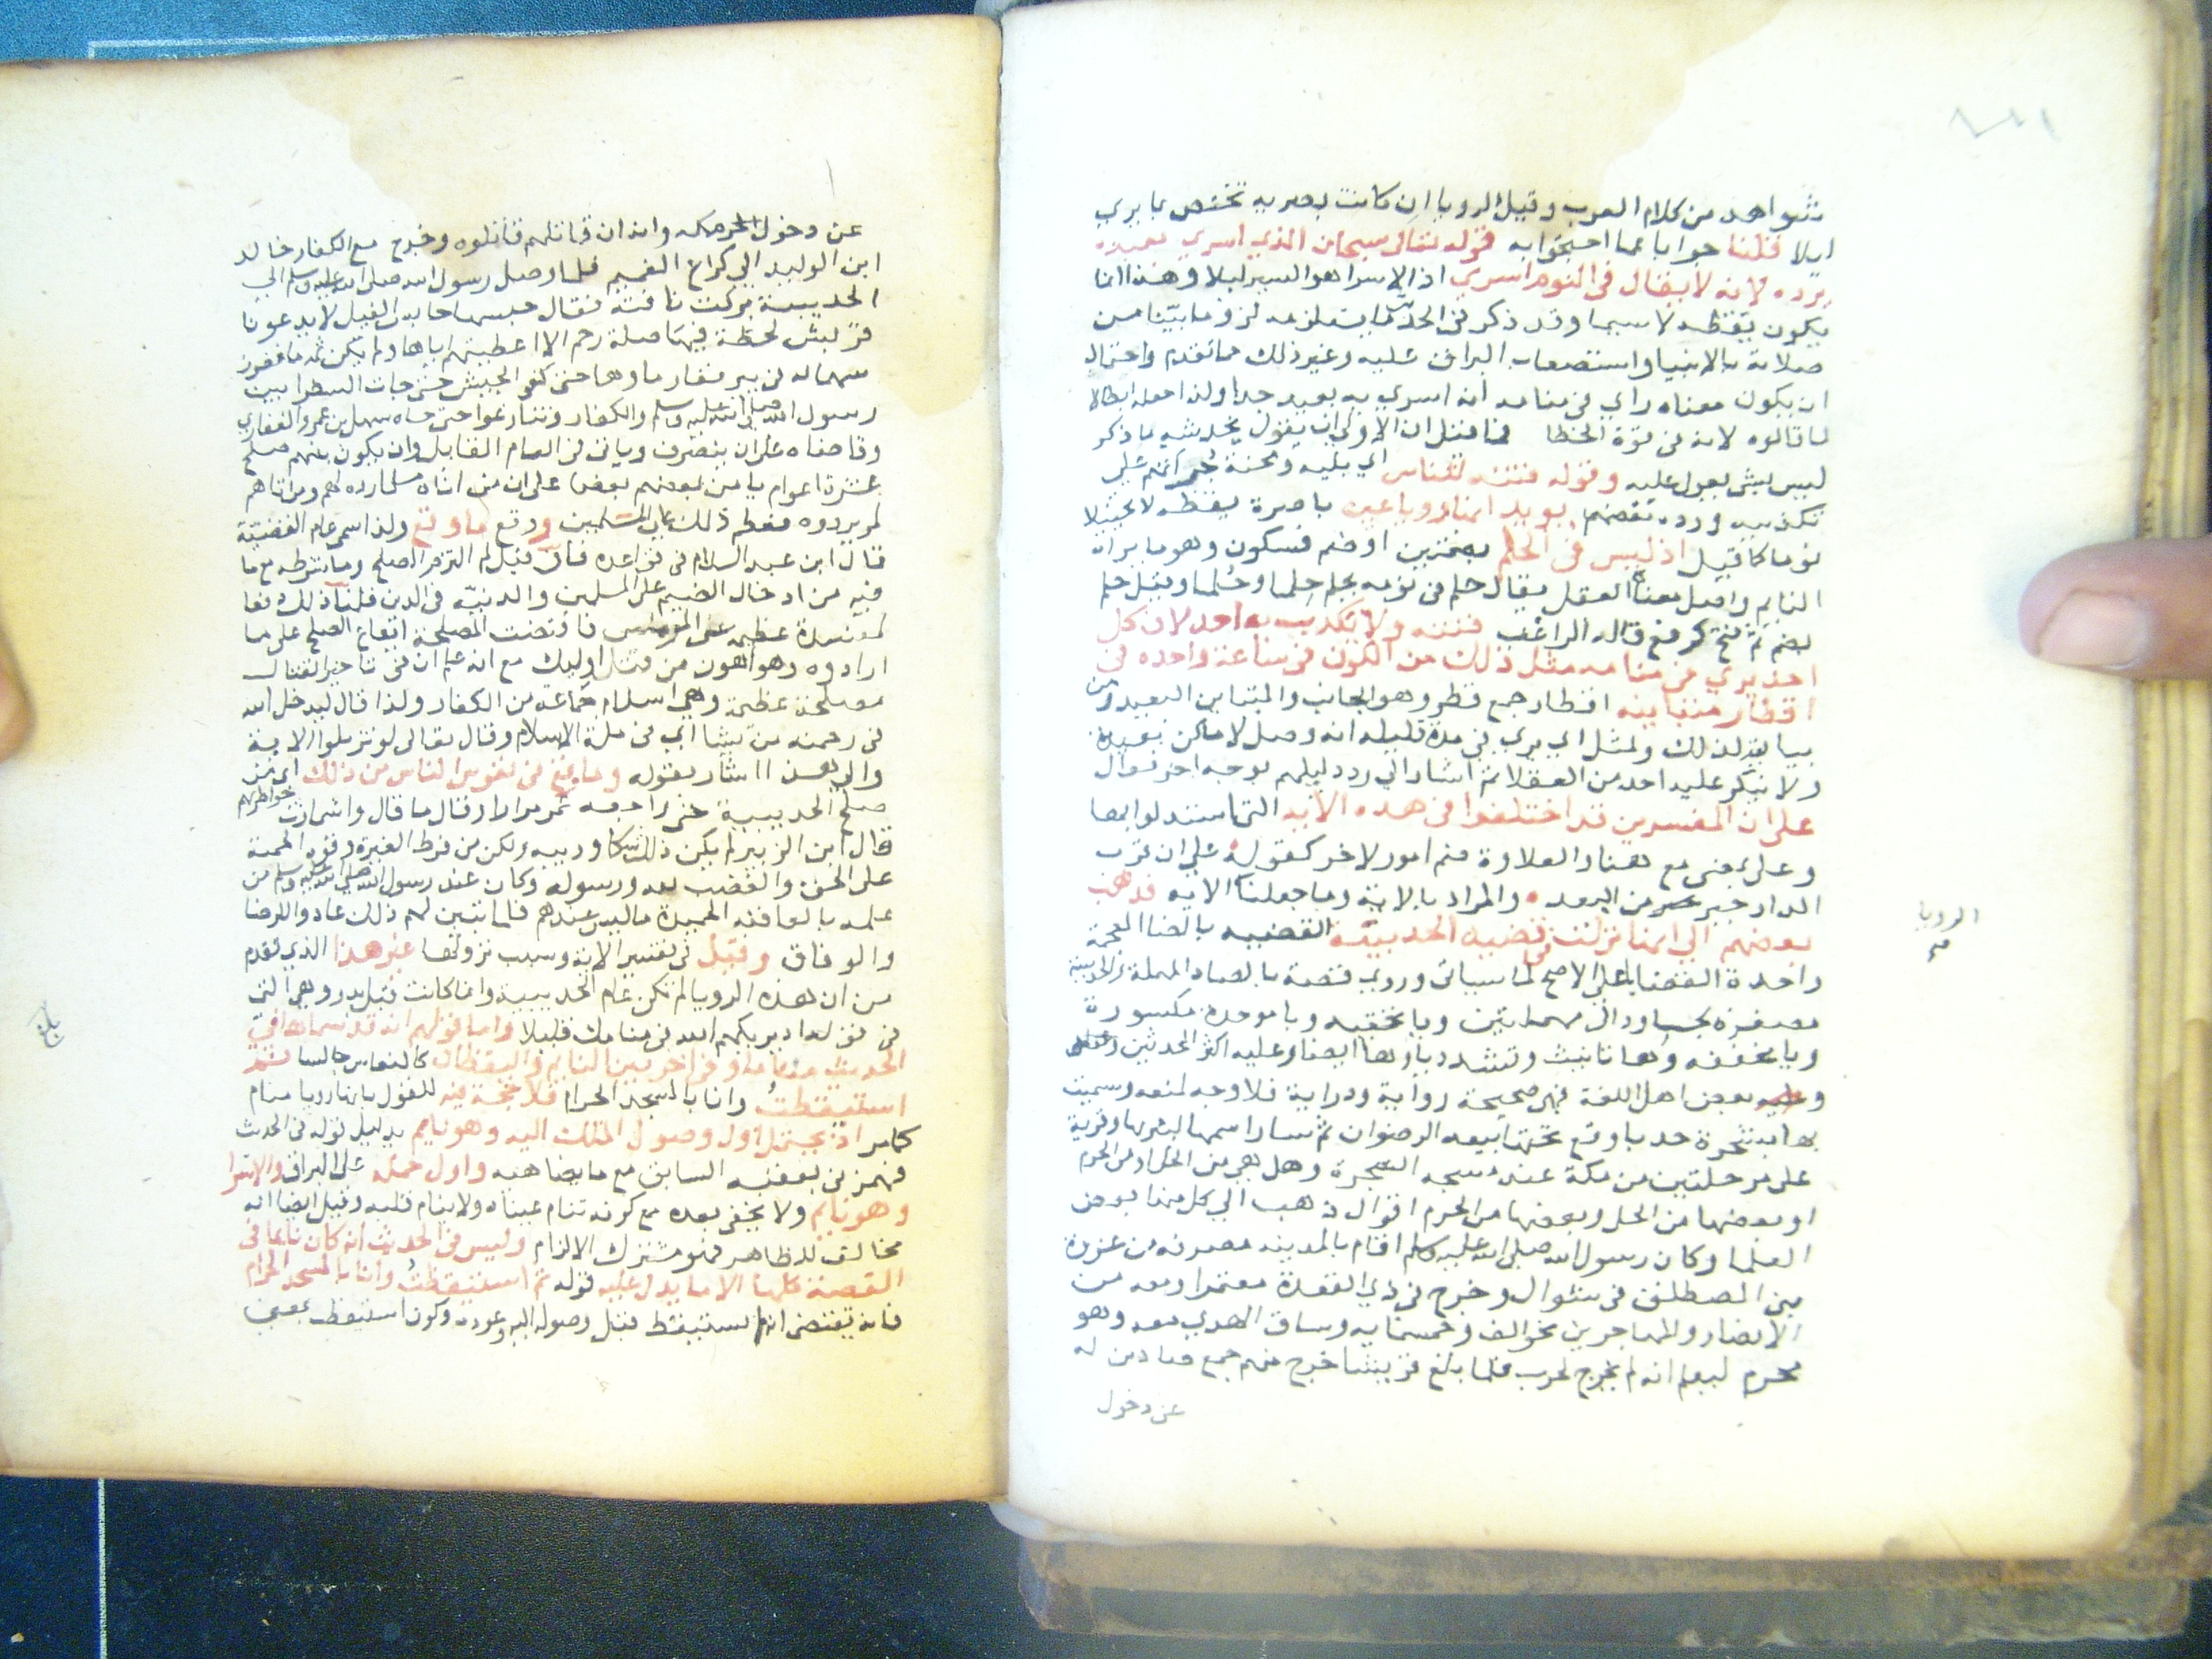 شواهد من كلام العرب وقيل الرويا ان كانت بصريه تختص بما يري
ليلا قلنا جوابا عما احتجوا به قوله تعالى سبحان الذي اسري بعبده
يرده لانه لا يقال في النوم اسري اذ الاسرا هو السير ليلا وهذا انما
يكون يقظه لاسيما وقد ذكر في الحديث ما يستلزمه لزوما بينا من
صلاته بالانبيا واستصعاب البراق عليه وغير ذلك مما تقدم واحتمال
ان يكون معناه راي في منامه انه اسري به بعيد جدا ولذا جعله ابطالا
لما قالوه لانه في قوة الخطا فما قيل ان الاولى ان يقول يخدشه ما ذكر
ليس بشي يعول عليه وقوله فتنه للناس اي بليه ومحنة جراتهم على
تكذيبه ورده بعضهم يويد انها رويا عين باصرة يقظه لا تخيلا
نوما كما قيل اذ ليس في الحلم بضمتين او ضم فسكون وهو ما يراه
النايم واصل معناه العقل يقال حلم في نومه يحلم حلما وحلما وقيل حلم
بضم ثم فتح كربع قاله الراغب فتنه ولا يكذب به احد لان كل
احد يري في منامه مثل ذلك من الكون في ساعة واحده في
اقطار متباينه اقطار جمع قطر وهو الجانب والمتباين البعيد ومن
بيانيه لذلك ولمثل اي يري في مدة قليله انه وصل لاماكن بعيدة
ولا ينكر عليه احد من العقلا ثم اشار الي رد دليلهم بوجه اخر فقال
على ان المفسرين قد اختلفوا في هذه الايه التي استدلوا بها
وعلى بمعنى مع هنا والعلاوة ضم امور لاخر كقوله على ان قرب
الدار خير من البعد والمراد بالاية وما جعلنا الايه فذهب
بعضهم الي انها نزلت في قضيه الحديبية القضيه بالضاد المعجمة
واحدة القضايا على الاصح لما سياتي وروي قصة بالصاد المهملة والحديبية
مصغره بحا ودال مهملتين ويا تحتيه وبا موحدة مكسورة
ويا مخففه وها تانيث وتشدد ياوها ايضا وعليه اكثر المحدثين
وبعض اهل اللغة فهي صحيحة رواية ودراية فلا وجه لمنعه وسميت
بها لشجرة حدبا وقع تحتها بيعه الرضوان ثم صار اسمها لبير بها وقرية
على مرحلتين من مكة عند مسجد الشجرة وهل هي من الحل او من الحرم
او بعضها من الحل وبعضها من الحرم اقوال ذهب الي كل منها بعض
العلما وكان رسول الله صلى الله عليه وسلم اقام بالمدينه منصرفه من غزوة
بني المصطلق في شوال وخرج في ذي القعدة معتمرا ومعه من
الانصار والمهاجرين نحو الف وخمسمايه وساق الهدي معه وهو
محرم ليعلم انه لم يخرج لحرب فلما بلغ قريشا خرج منهم جمع صادين له
عن دخول
الرويا
عن دخول الحرم مكه وانه ان قاتلهم قاتلوه وخرج مع الكفار خالد
ابن الوليد الي كراع الغميم فلما وصل رسول الله صلى الله عليه وسلم الي
الحديبية بركت ناقته فقال حبسها حابس الفيل لا يدعونا
قريش لخطة فيها صلة رحم الا اعطيتهم اياها ولم يكن ثمه ما فغرز
سهما له في بير فغار ماوها حتى كفى الجيش ثم جرت السفرا بين
رسول الله صلى الله عليه وسلم والكفار وتنازعوا حتى جاه سهل بن عمرو
وقاضاه على ان ينصرف وياتي في العام القابل وان يكون بينهم صلح
عشرة اعوام يا من بعضهم بعضا على ان من اتاه مسلما رده لهم ومن اتاهم
لم يردوه فعظم ذلك على المسلمين ووقع ما وقع ولذا سمي عام القضية
قال ابن عبد السلام في قواعده فان قيل لم التزم الصلح وما شرطه مع ما
فيه من ادخال الضيم على المسلمين والدنيه في الدين قلنا ذلك دفعا
لمفسدة عظيمه على المومنين فاقتضت المصلحة ايقاع الصلح على ما
ارادوه وهو اهون من قتل اوليك مع انه علم ان في تاخير القتال
مصلحة عظيمة وهي اسلام جماعه من الكفار ولذا قال ليدخل الله
في رحمته من يشا اي في ملة الاسلام وقال تعالى لو تزيلوا الاية
والي هذا اشار بقوله وما وقع في نفوس الناس من ذلك اي من
صلح الحديبية حتى راجعه عمر مرارا وقال ما قال واشمازت خواطرهم
قال ابن الزبير لم يكن ذلك شكا وريبه ولكن من فرط الغيرة وقوه الحمية
على الحق والغضب لله ورسوله وكان عند رسول الله صلى الله عليه وسلم من
علمه بالعاقبة الحميدة ما ليس عندهم فلما تبين لهم ذلك عادوا للرضا
والوفاق وقيل في تفسير الاية وسبب نزولها غير هذا الذي تقدم
من ان هذه الرويا لم تكن عام الحديبية وانما كانت قبل بدر وهي التي
في قوله اذ يريكهم الله في منامك قليلا واما قولهم انه قد سماها في
الحديث مناما وفي اخر بين النايم واليقظان كالنعاس جالسا ثم
استيقظت وانا بالمسجد الحرام فلا حجة فيه للقول بانها رويا منام
كما مر اذ يحتمل اول وصول الملك اليه وهو نايم بدليل قوله في الحديث
فهمزني بعقبه السابق مع ما يضاهيه واول حمله على البراق والاسرا
وهو نايم ولا يخفى بعده مع كونه تنام عيناه ولا ينام قلبه وقيل ايضا انه
مخالف للظاهر فهو مشترك الالزام وليس في الحديث انه كان نايما في
القصة كلها الا ما يدل عليه قوله ثم استيقظت وانا بالمسجد الحرام
فانه يقتضي انه لم يستيقظ قبل وصوله اليه وعوده وكون استيقظ بمعنى
بلغ